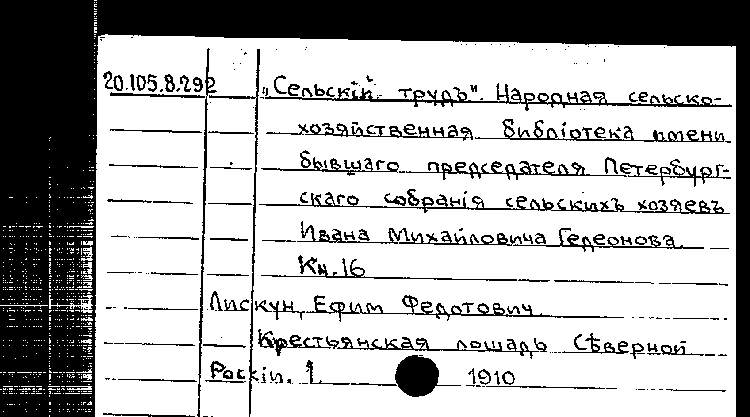 20.105.8.292 „Сельскій трудъ". Народная сельско-
хозяйственная библіотека имени
бывшаго председателя Петербург-
скаго собранія сельскихъ хозяевъ
Ивана Михайловича Гедеонова
Кн. 16
Лискун, Ефим Федотович
Крестьянская лошадь Сѣверной
Россіи. 1. 1910